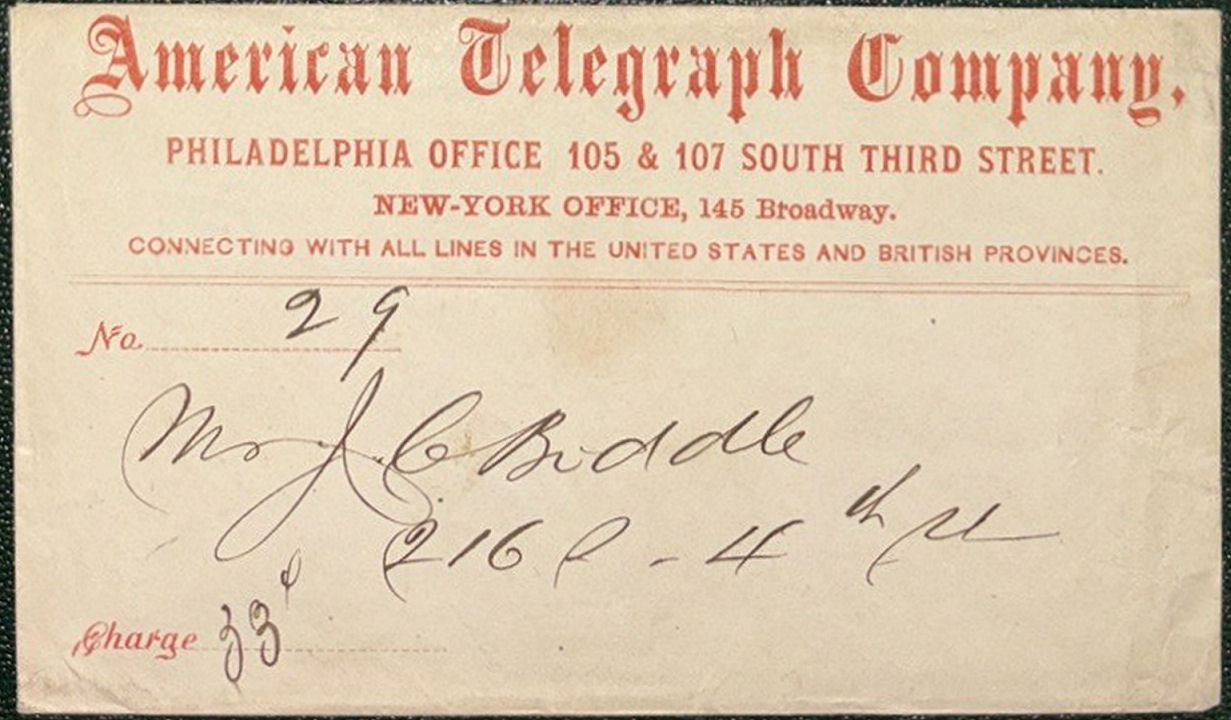 American Telegraph Company.
PHILADELPHIA OFFICE 105 & 107 SOUTH THIRD STREET.
NEW-YORK OFFICE, 145 Broadway.
CONNECTING WITH ALL LINES IN THE UNITED STATES AND BRITISH PROVINCES.
No. 29
Mr J. C Biddle
216 S - 4th St
Charge 33¢